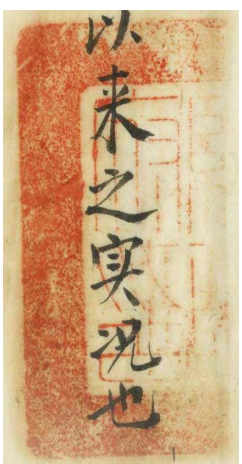 以来之实况也